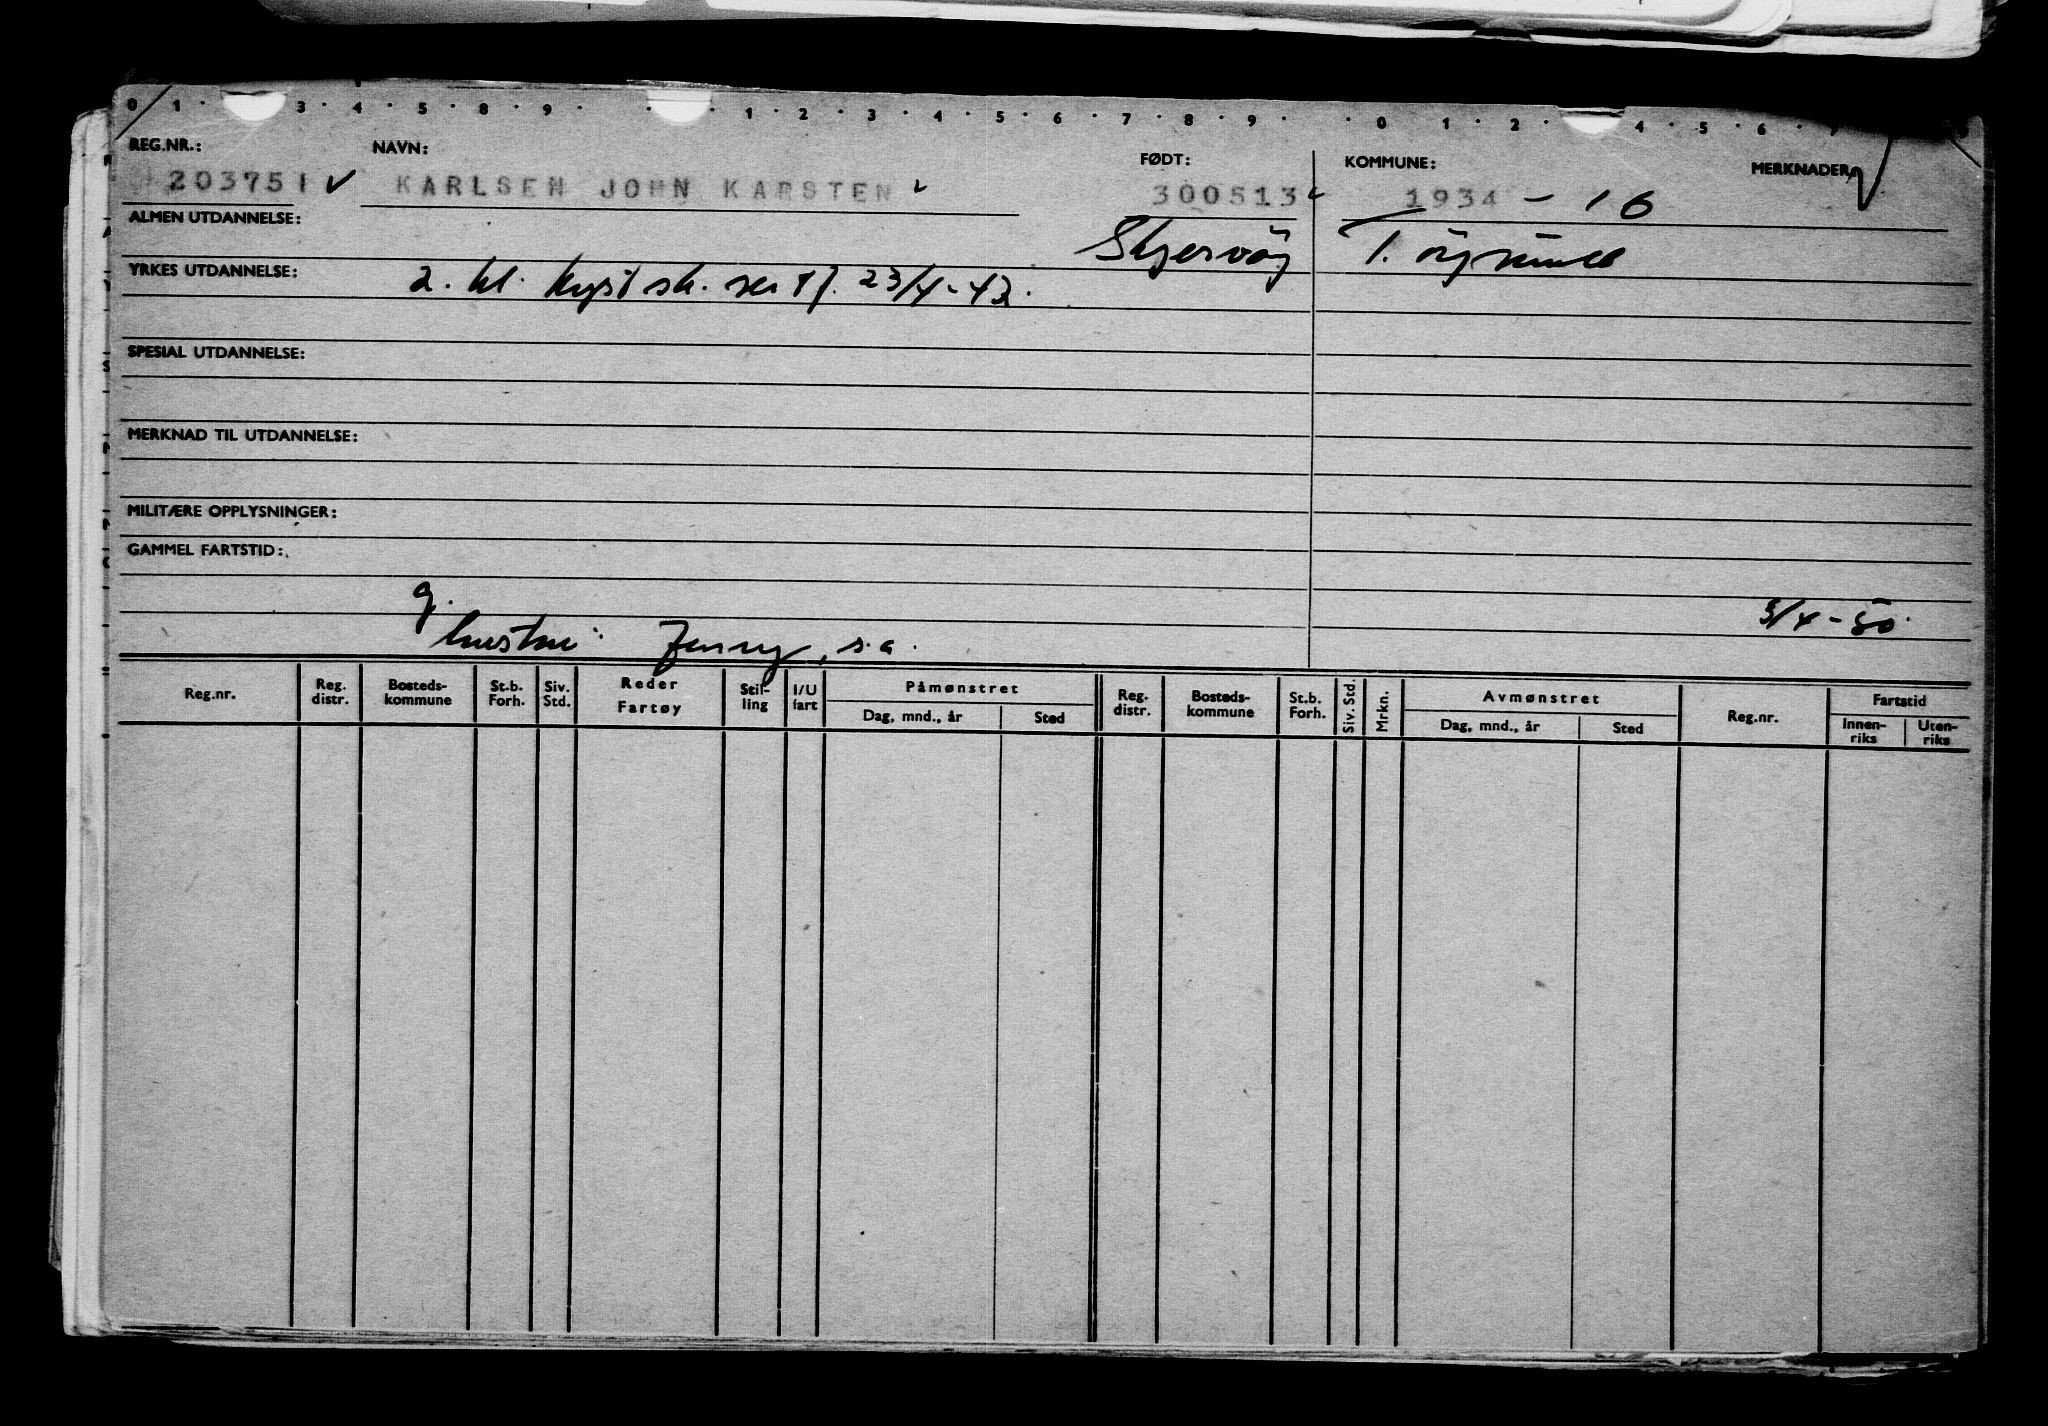 0 1 · 3 · 4 · 5 · 8 · 9 · · · 1 · 2 · 3 · 4 · 5 · 6 · 7 · 8 · 9 · · 0 1 · 2 · 4 · 5 · 6 · 7
REG.NR.: NAVN: FØDT: KOMMUNE: MERKNADER
203751 KARLSEN JOHN KARSTEN 300513 1934 - 16
ALMEN UTDANNELSE: Skjervöy
YRKES UTDANNELSE: 2. kl. kyst sk. sertf. 23/4-42.
SPESIAL UTDANNELSE:
MERKNAD TIL UTDANNELSE:
MILITÆRE OPPLYSNINGER:
GAMMEL FARTSTID:
g. 3/4-50.
hustru: Jenny, s.a.
Reg.nr. Reg. distr. Bosteds-kommune St.b. Forh. Siv. Std. Reder Fartøy Stil-ling I/U fart Påmønstret Reg. distr. Bosteds-kommune St.b. Forh. Siv. Std. Mrkn. Avmønstret Reg.nr. Fartstid
Dag, mnd., år Sted Dag, mnd., år Sted Innen-riks Uten-riks